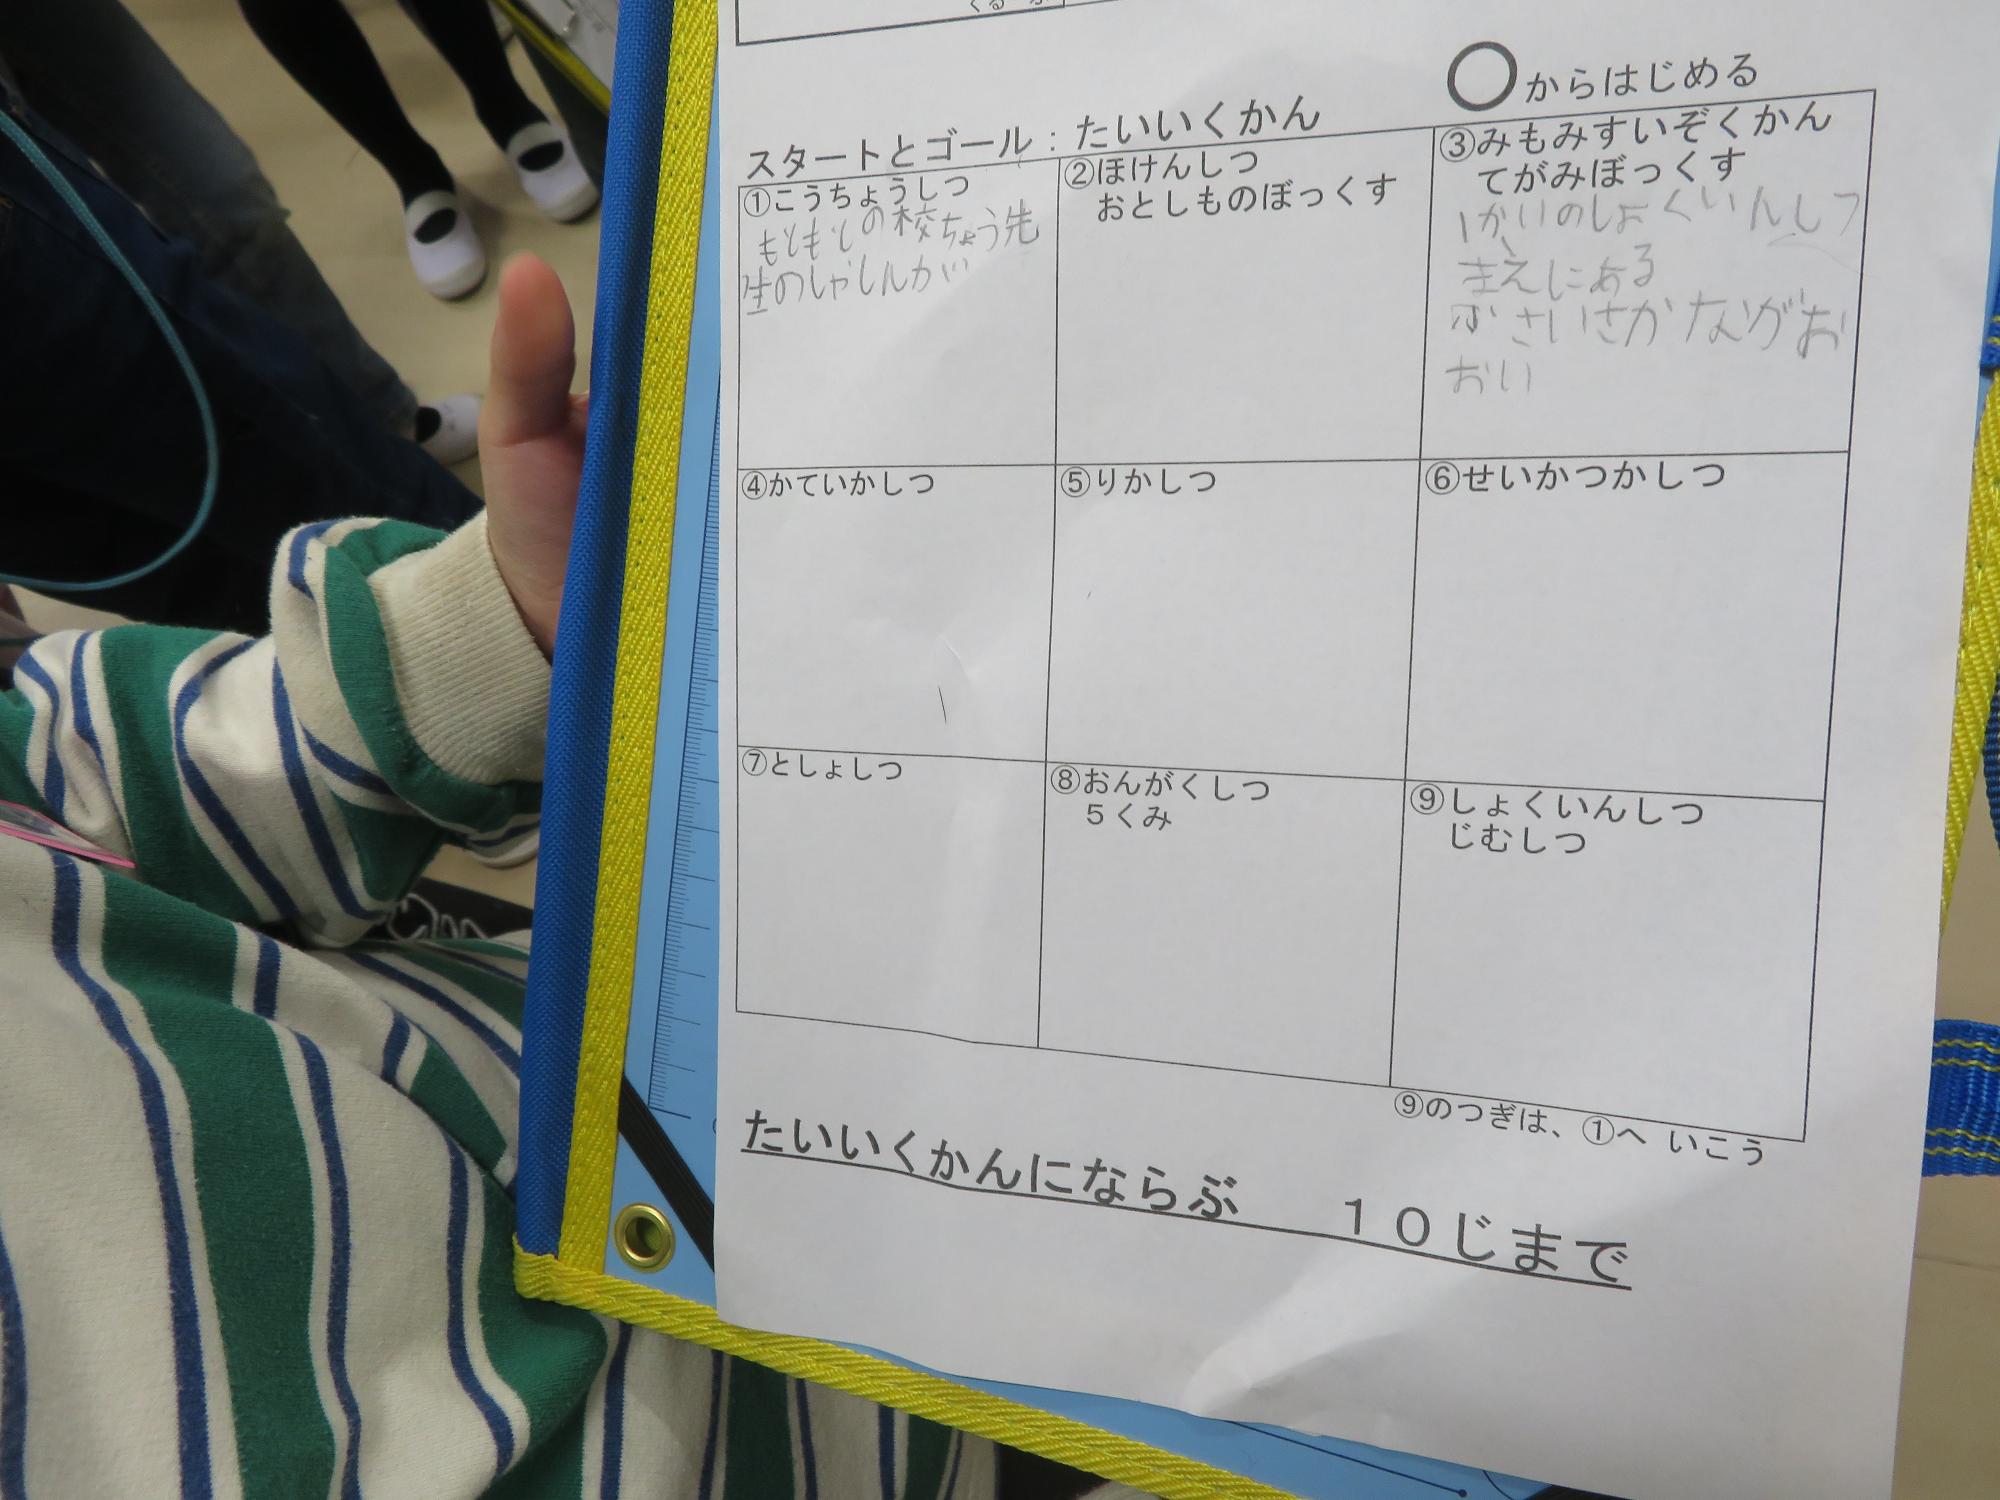 〇からはじめる
スタートとゴール：たいいくかん
①こうちょうしつ
もともとの校ちょう先
生のしゃしんが
②ほけんしつ
おとしものぼっくす
③みもみすいぞくかん
てがみぼっくす
いかいのしょくいんしつ
まえにある
さいさかながお
おい
④かていかしつ
⑤りかしつ
⑥せいかつかしつ
⑦としょしつ
⑧おんがくしつ
５くみ
⑨しょくいんしつ
じむしつ
⑨のつぎは、①へ いこう
たいいくかんにならぶ　１０じまで